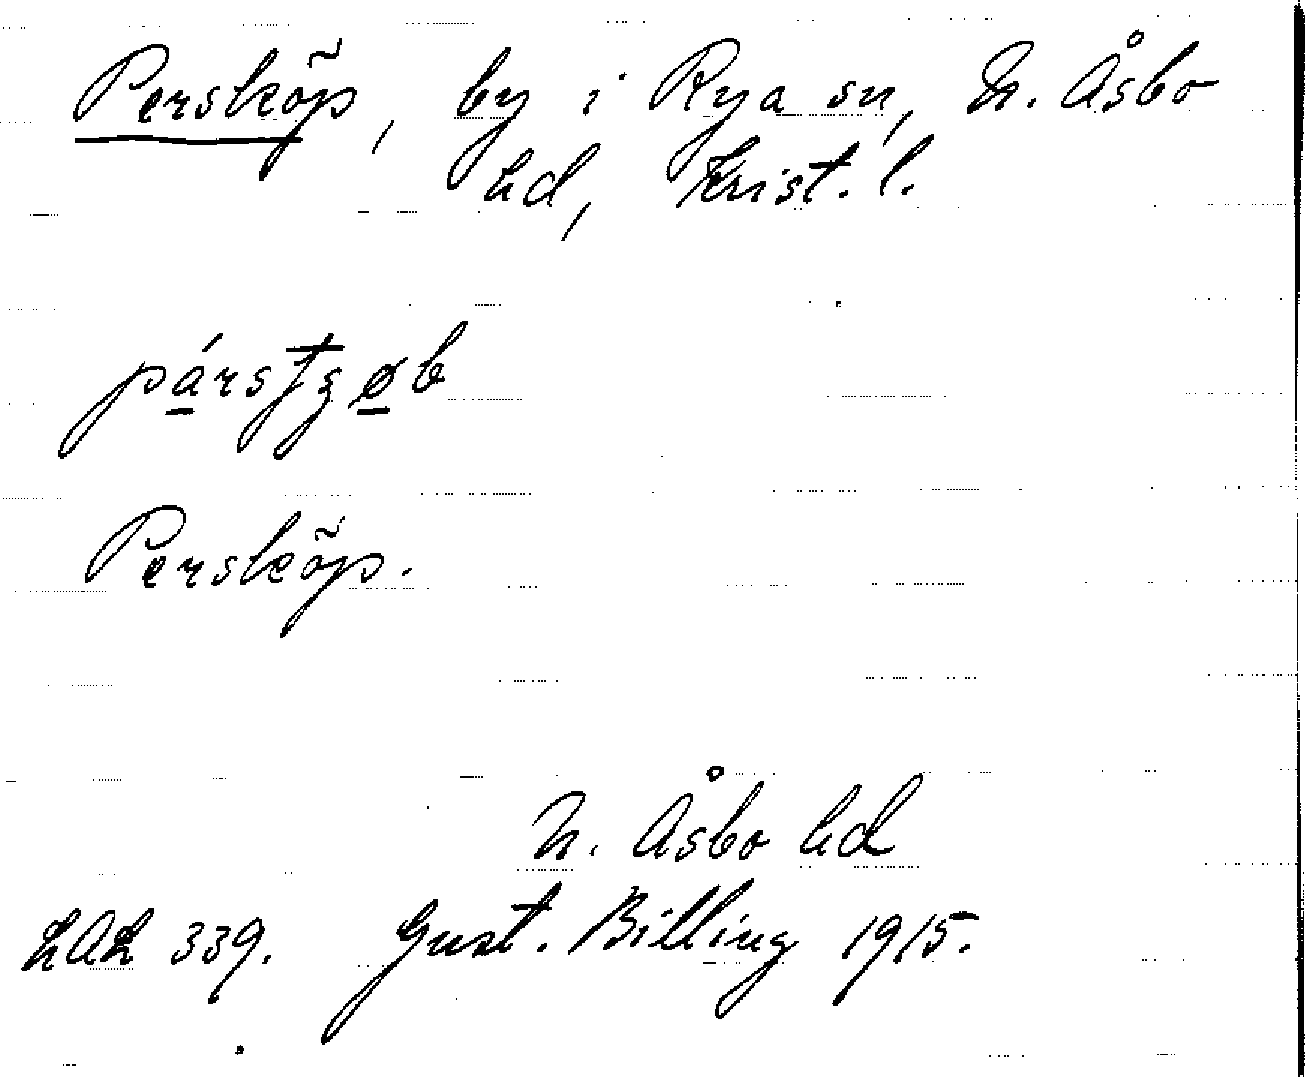 Persköp, by i Rya sn, N. Åsbo
hd, Krist. l.
Persköp.
N. Åsbo hd
LAL 339. Gust. Billing 1915.